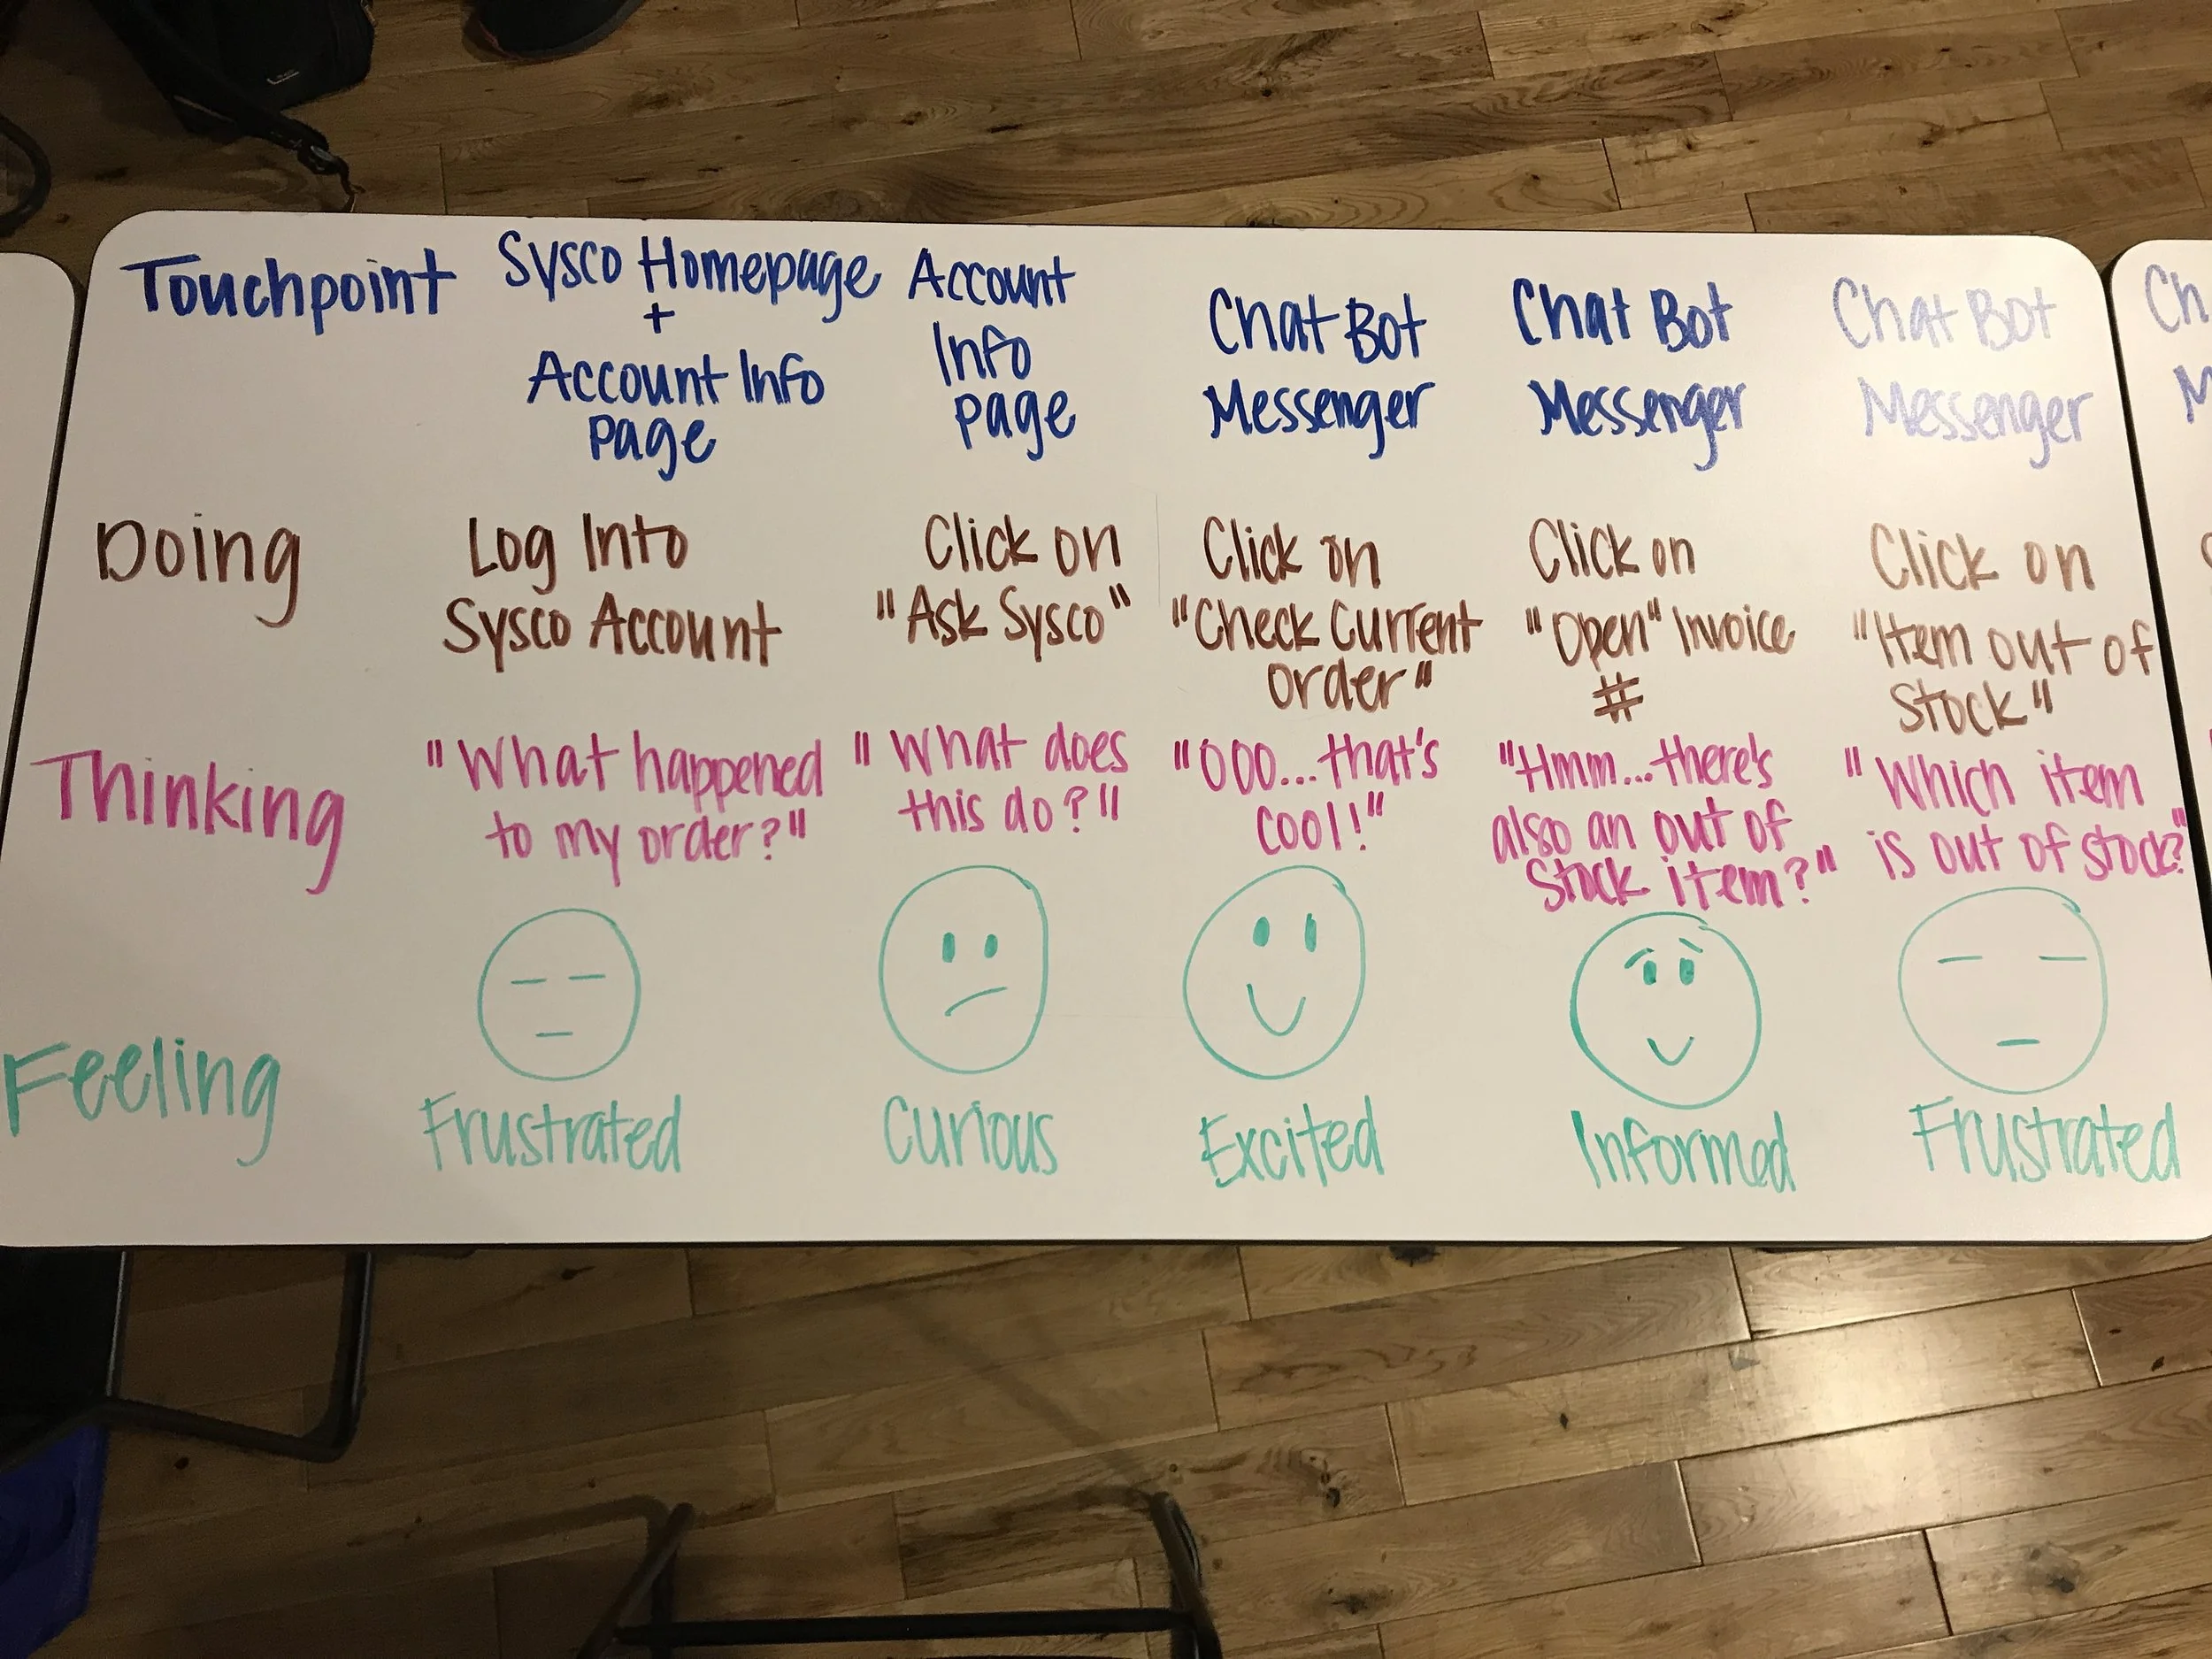 Touchpoint
Sysco Homepage
+
Account Info
page
Account
Info
page
Chat Bot
Messenger
Chat Bot
Messenger
Chat Bot
Messenger
Ch
M
Doing
Log Into
Sysco Account
Click on
"Ask Sysco"
Click on
"Check Current
order"
Click on
"Open" Invoice
#
Click on
"Item out of
Stock"
Thinking
"What happened
to my order?"
"What does
this do?"
"OOO...that's
cool!"
"Hmm...there's
also an out of
Stock item?"
"Which item
is out of stock?"
Feeling
Frustrated
Curious
Excited
Informed
Frustrated